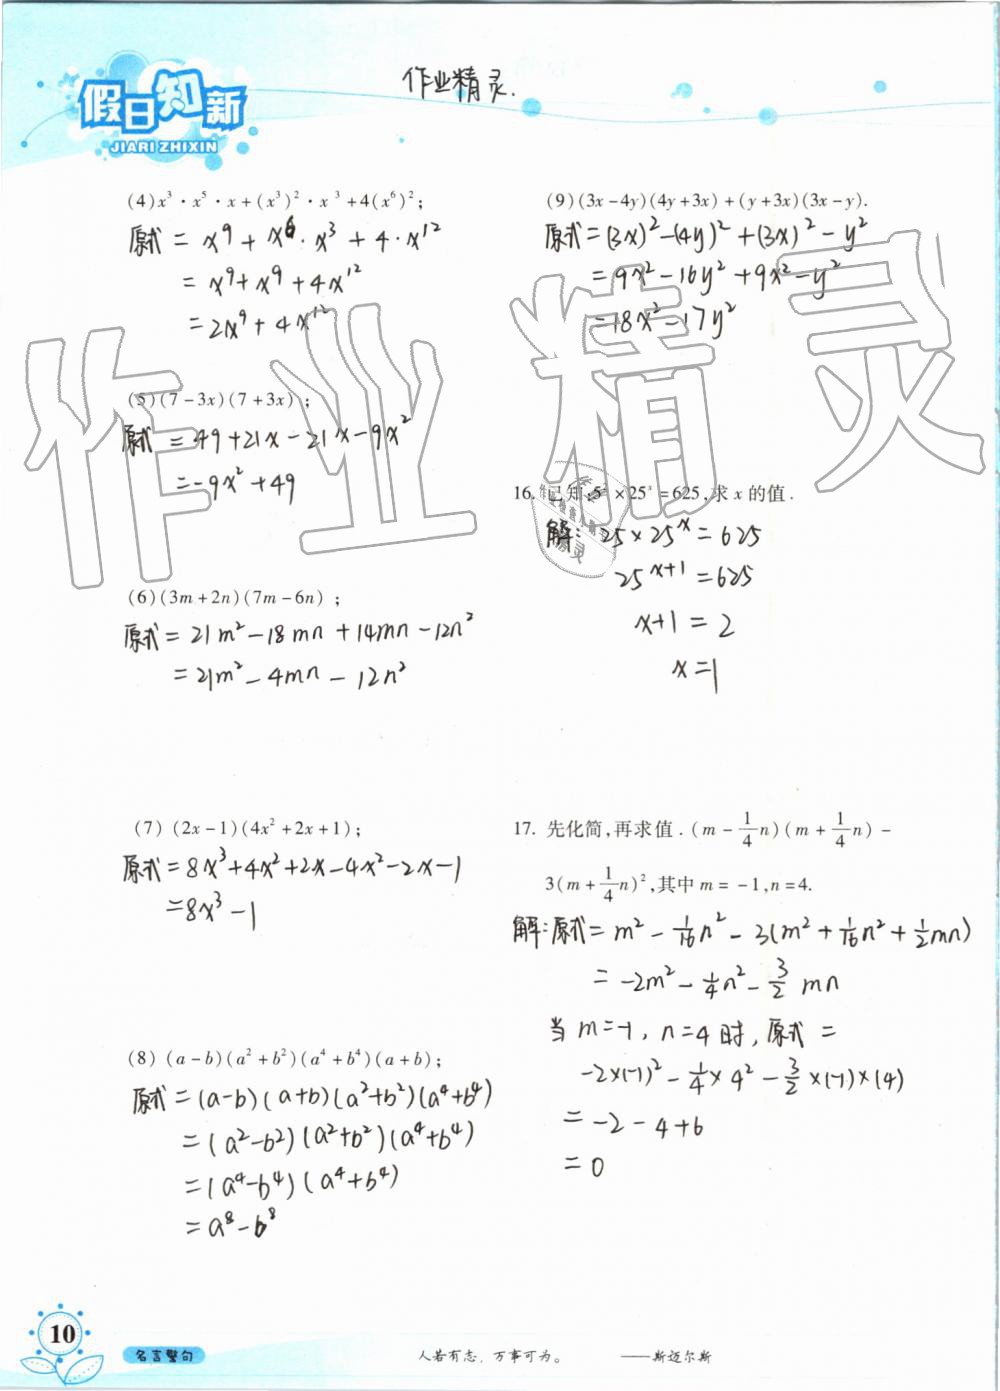 假日知新
JIARI ZHIXIN
作业精灵.
(4)x³·x⁵·x+(x³)²·x³+4(x⁶)²;
原式 = x⁹ + x⁶·x³ + 4·x¹²
= x⁹+x⁹+4x¹²
=2x⁹+4x¹²
(5)(7-3x)(7+3x);
原式 = 49+21x-21x-9x²
=-9x²+49
(6)(3m+2n)(7m-6n);
原式 = 21m²-18mn+14mn-12n²
= 21m²-4mn-12n²
(7) (2x-1)(4x²+2x+1);
原式=8x³+4x²+2x-4x²-2x-1
=8x³-1
(8) (a-b)(a²+b²)(a⁴+b⁴)(a+b);
原式 = (a-b)(a+b)(a²+b²)(a⁴+b⁴)
= (a²-b²)(a²+b²)(a⁴+b⁴)
= (a⁴-b⁴)(a⁴+b⁴)
= a⁸-b⁸
(9)(3x-4y)(4y+3x)+(y+3x)(3x-y).
原式=(3x)²-(4y)²+(3x)²-y²
= 9x²-16y²+9x²-y²
=18x²-17y²
16.已知:5²×25ˣ=625,求x的值.
解: 25×25ˣ=625
25ˣ⁺¹=625
x+1=2
x=1
17. 先化简,再求值.(m-1/4n)(m+1/4n)-
3(m+1/4n)²,其中m=-1,n=4.
解:原式= m²-1/16n²-3(m²+1/16n²+1/2mn)
= -2m²-1/4n²-3/2mn
当m=-1,n=4时,原式=
-2×(-1)²-1/4×4²-3/2×(-1)×(4)
= -2-4+6
= 0
作业精灵
10
名言警句
人若有志,万事可为。 ——斯迈尔斯